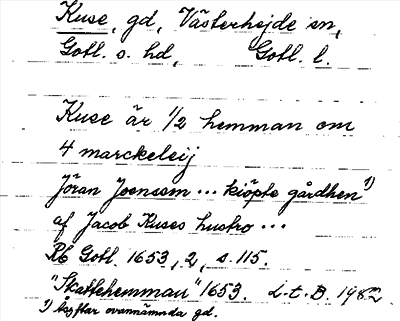 Kuse, gd, Västerhejde sn,
Gotl. s. hd, Gotl. l.
Kuse är 1/2 hemman om
4 marckeleij
Jöran Joensem ... kiöpte gårdhen 1)
af Jacob Kuses hustro ...
Rb Gotl. 1653, 2, s. 115.
"Skattehemman" 1653. L.t.B. 1982
1) syftar ovannämnda gd.